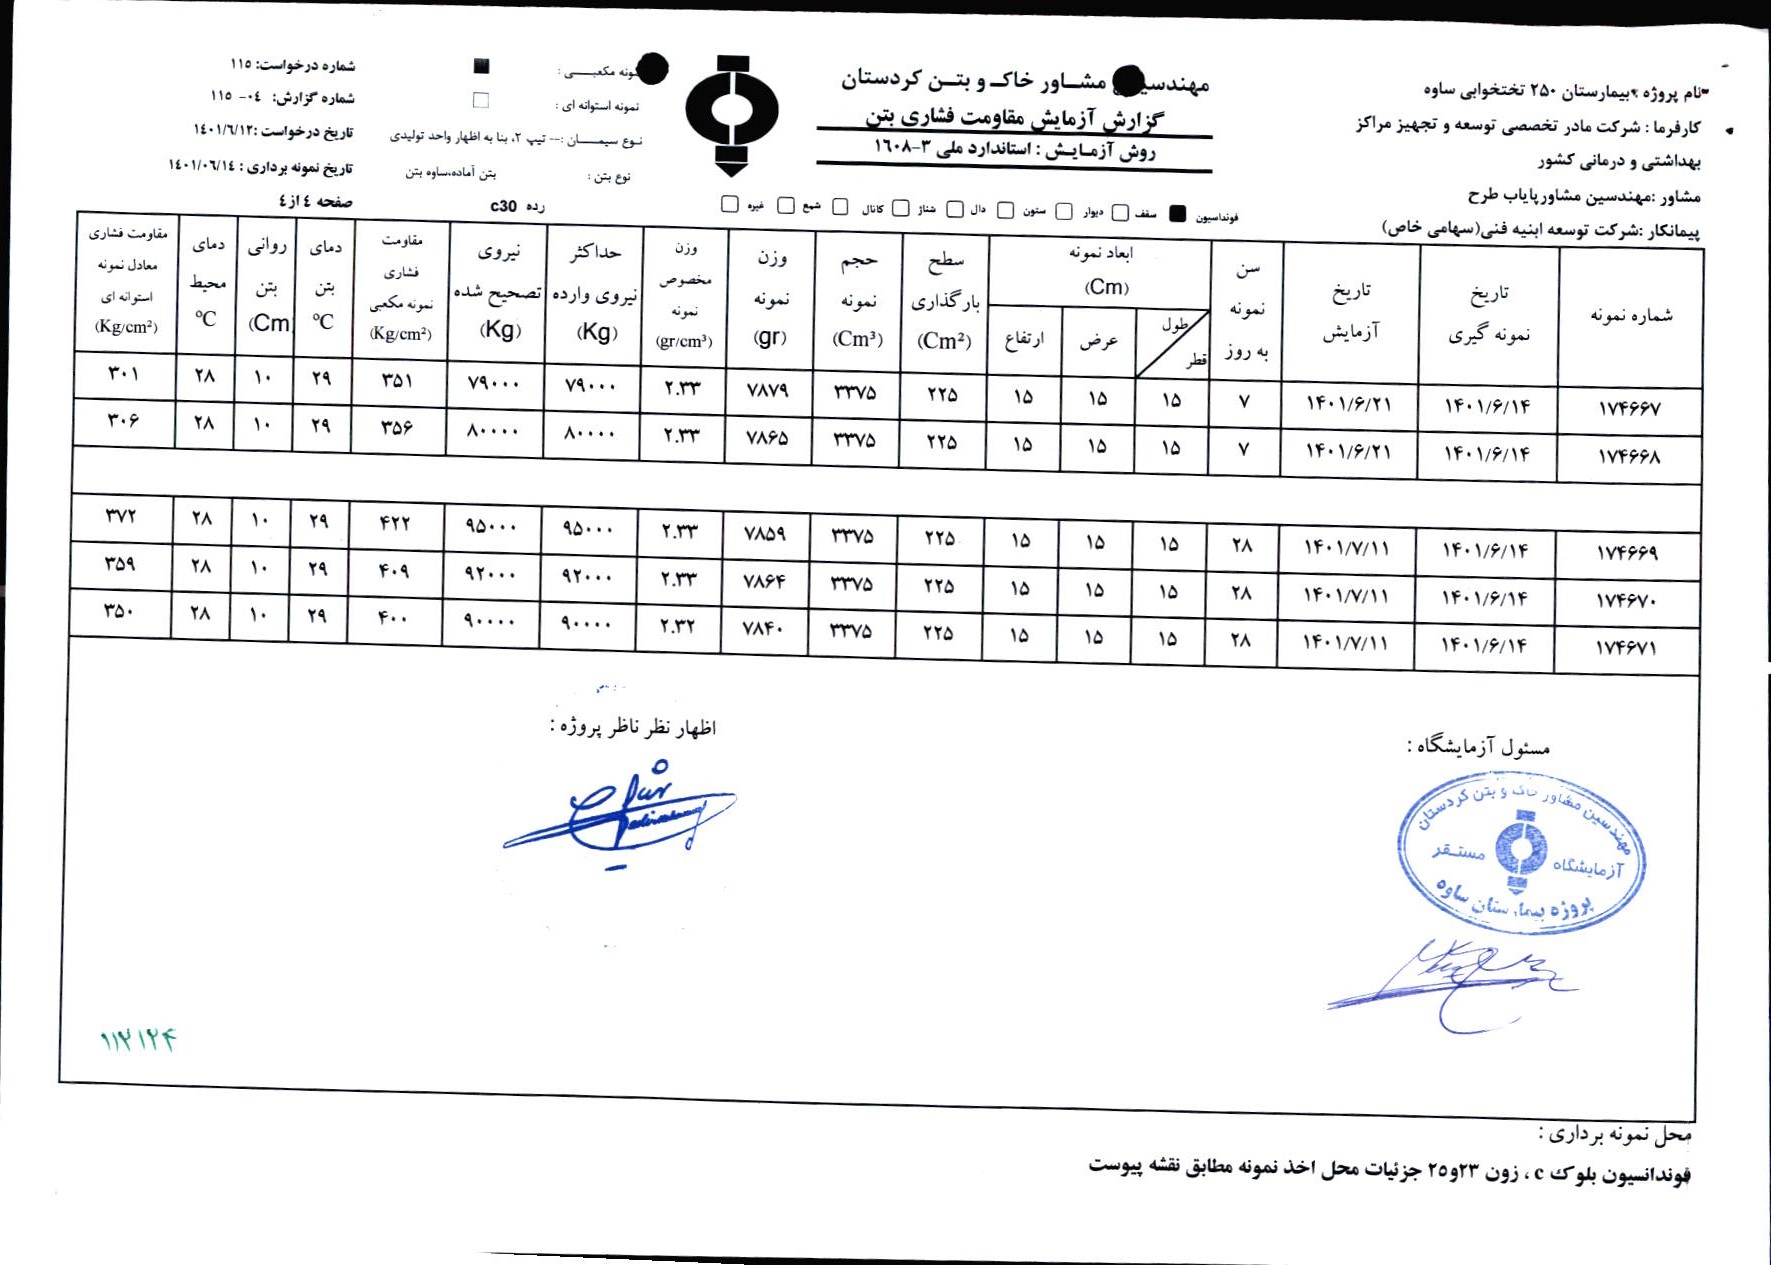 نام پروژه :بیمارستان ۲۵۰ تختخوابی ساوه
کارفرما : شرکت مادر تخصصی توسعه و تجهیز مراکز
بهداشتی و درمانی کشور
مشاور :مهندسین مشاورپایاب طرح
پیمانکار :شرکت توسعه ابنیه فنی(سهامی خاص)
مشـاور خاک و بتـن کردستان
گزارش آزمایش مقاومت فشاری بتن
روش آزمـایـش : استاندارد ملی ۳-۱۶۰۸
نمونه مکعبـــی :
نمونه استوانه ای :
نـوع سیمـــان :-- تیپ ۲، بنا به اظهار واحد تولیدی
نوع بتن : بتن آماده،ساوه بتن
رده c30
شماره درخواست: ۱۱۵
شماره گزارش: ۰۴- ۱۱۵
تاریخ درخواست :۱۴۰۱/۶/۱۲
تاریخ نمونه برداری : ۱۴۰۱/۰۶/۱۴
صفحه ٤ از٤
فونداسیون سقف دیوار ستون دال شناژ کانال شمع غیره
شماره نمونه
تاریخ نمونه گیری
تاریخ آزمایش
سن نمونه به روز
ابعاد نمونه (Cm)
طول قطر عرض ارتفاع
سطح بارگذاری (Cm²)
حجم نمونه (Cm³)
وزن نمونه (gr)
وزن مخصوص نمونه (gr/cm³)
حداکثر نیروی وارده (Kg)
نیروی تصحیح شده (Kg)
مقاومت فشاری نمونه مکعبی (Kg/cm²)
دمای بتن ºC
روانی بتن (Cm)
دمای محیط ºC
مقاومت فشاری معادل نمونه استوانه ای (Kg/cm²)
۱۷۴۶۶۷ ۱۴۰۱/۶/۱۴ ۱۴۰۱/۶/۲۱ ۷ ۱۵ ۱۵ ۱۵ ۲۲۵ ۳۳۷۵ ۷۸۷۹ ۲.۳۳ ۷۹۰۰۰ ۷۹۰۰۰ ۳۵۱ ۲۹ ۱۰ ۲۸ ۳۰۱
۱۷۴۶۶۸ ۱۴۰۱/۶/۱۴ ۱۴۰۱/۶/۲۱ ۷ ۱۵ ۱۵ ۱۵ ۲۲۵ ۳۳۷۵ ۷۸۶۵ ۲.۳۳ ۸۰۰۰۰ ۸۰۰۰۰ ۳۵۶ ۲۹ ۱۰ ۲۸ ۳۰۶
۱۷۴۶۶۹ ۱۴۰۱/۶/۱۴ ۱۴۰۱/۷/۱۱ ۲۸ ۱۵ ۱۵ ۱۵ ۲۲۵ ۳۳۷۵ ۷۸۵۹ ۲.۳۳ ۹۵۰۰۰ ۹۵۰۰۰ ۴۲۲ ۲۹ ۱۰ ۲۸ ۳۷۲
۱۷۴۶۷۰ ۱۴۰۱/۶/۱۴ ۱۴۰۱/۷/۱۱ ۲۸ ۱۵ ۱۵ ۱۵ ۲۲۵ ۳۳۷۵ ۷۸۶۴ ۲.۳۳ ۹۲۰۰۰ ۹۲۰۰۰ ۴۰۹ ۲۹ ۱۰ ۲۸ ۳۵۹
۱۷۴۶۷۱ ۱۴۰۱/۶/۱۴ ۱۴۰۱/۷/۱۱ ۲۸ ۱۵ ۱۵ ۱۵ ۲۲۵ ۳۳۷۵ ۷۸۴۰ ۲.۳۲ ۹۰۰۰۰ ۹۰۰۰۰ ۴۰۰ ۲۹ ۱۰ ۲۸ ۳۵۰
مسئول آزمایشگاه :
اظهار نظر ناظر پروژه :
مهندسین مشاور خاک و بتن کردستان
آزمایشگاه مستـقر
پروژه بیمارستان ساوه
محل نمونه برداری :
فوندانسیون بلوک c ، زون ۲۳و۲۵ جزئیات محل اخذ نمونه مطابق نقشه پیوست